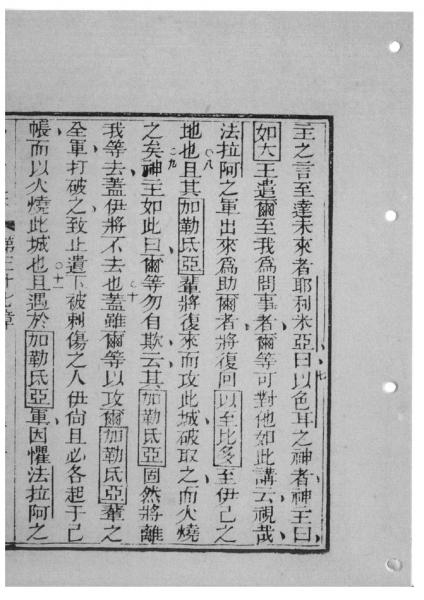 主之言至達未來者耶利米亞曰以色耳之神者神主曰
七
如大王遣爾至我爲問事者爾等可對他如此講云視哉
法拉阿之軍出來爲助爾者將復回以至比多至伊己之
○八
地也且其加勒氏亞輩將復來而攻此城破取之而火燒
○九
之矣神主如此曰爾等勿有欺云其加勒氏亞固然將離
我等去蓋伊將不去也蓋雖爾等以攻爾加勒氏亞輩之
○十
全軍打破之致止遺下被剌傷之人伊尚且必各起于己
帳而以火燒此城也且遇於加勒氏亞軍因懼法拉阿之
○十
第三十七章